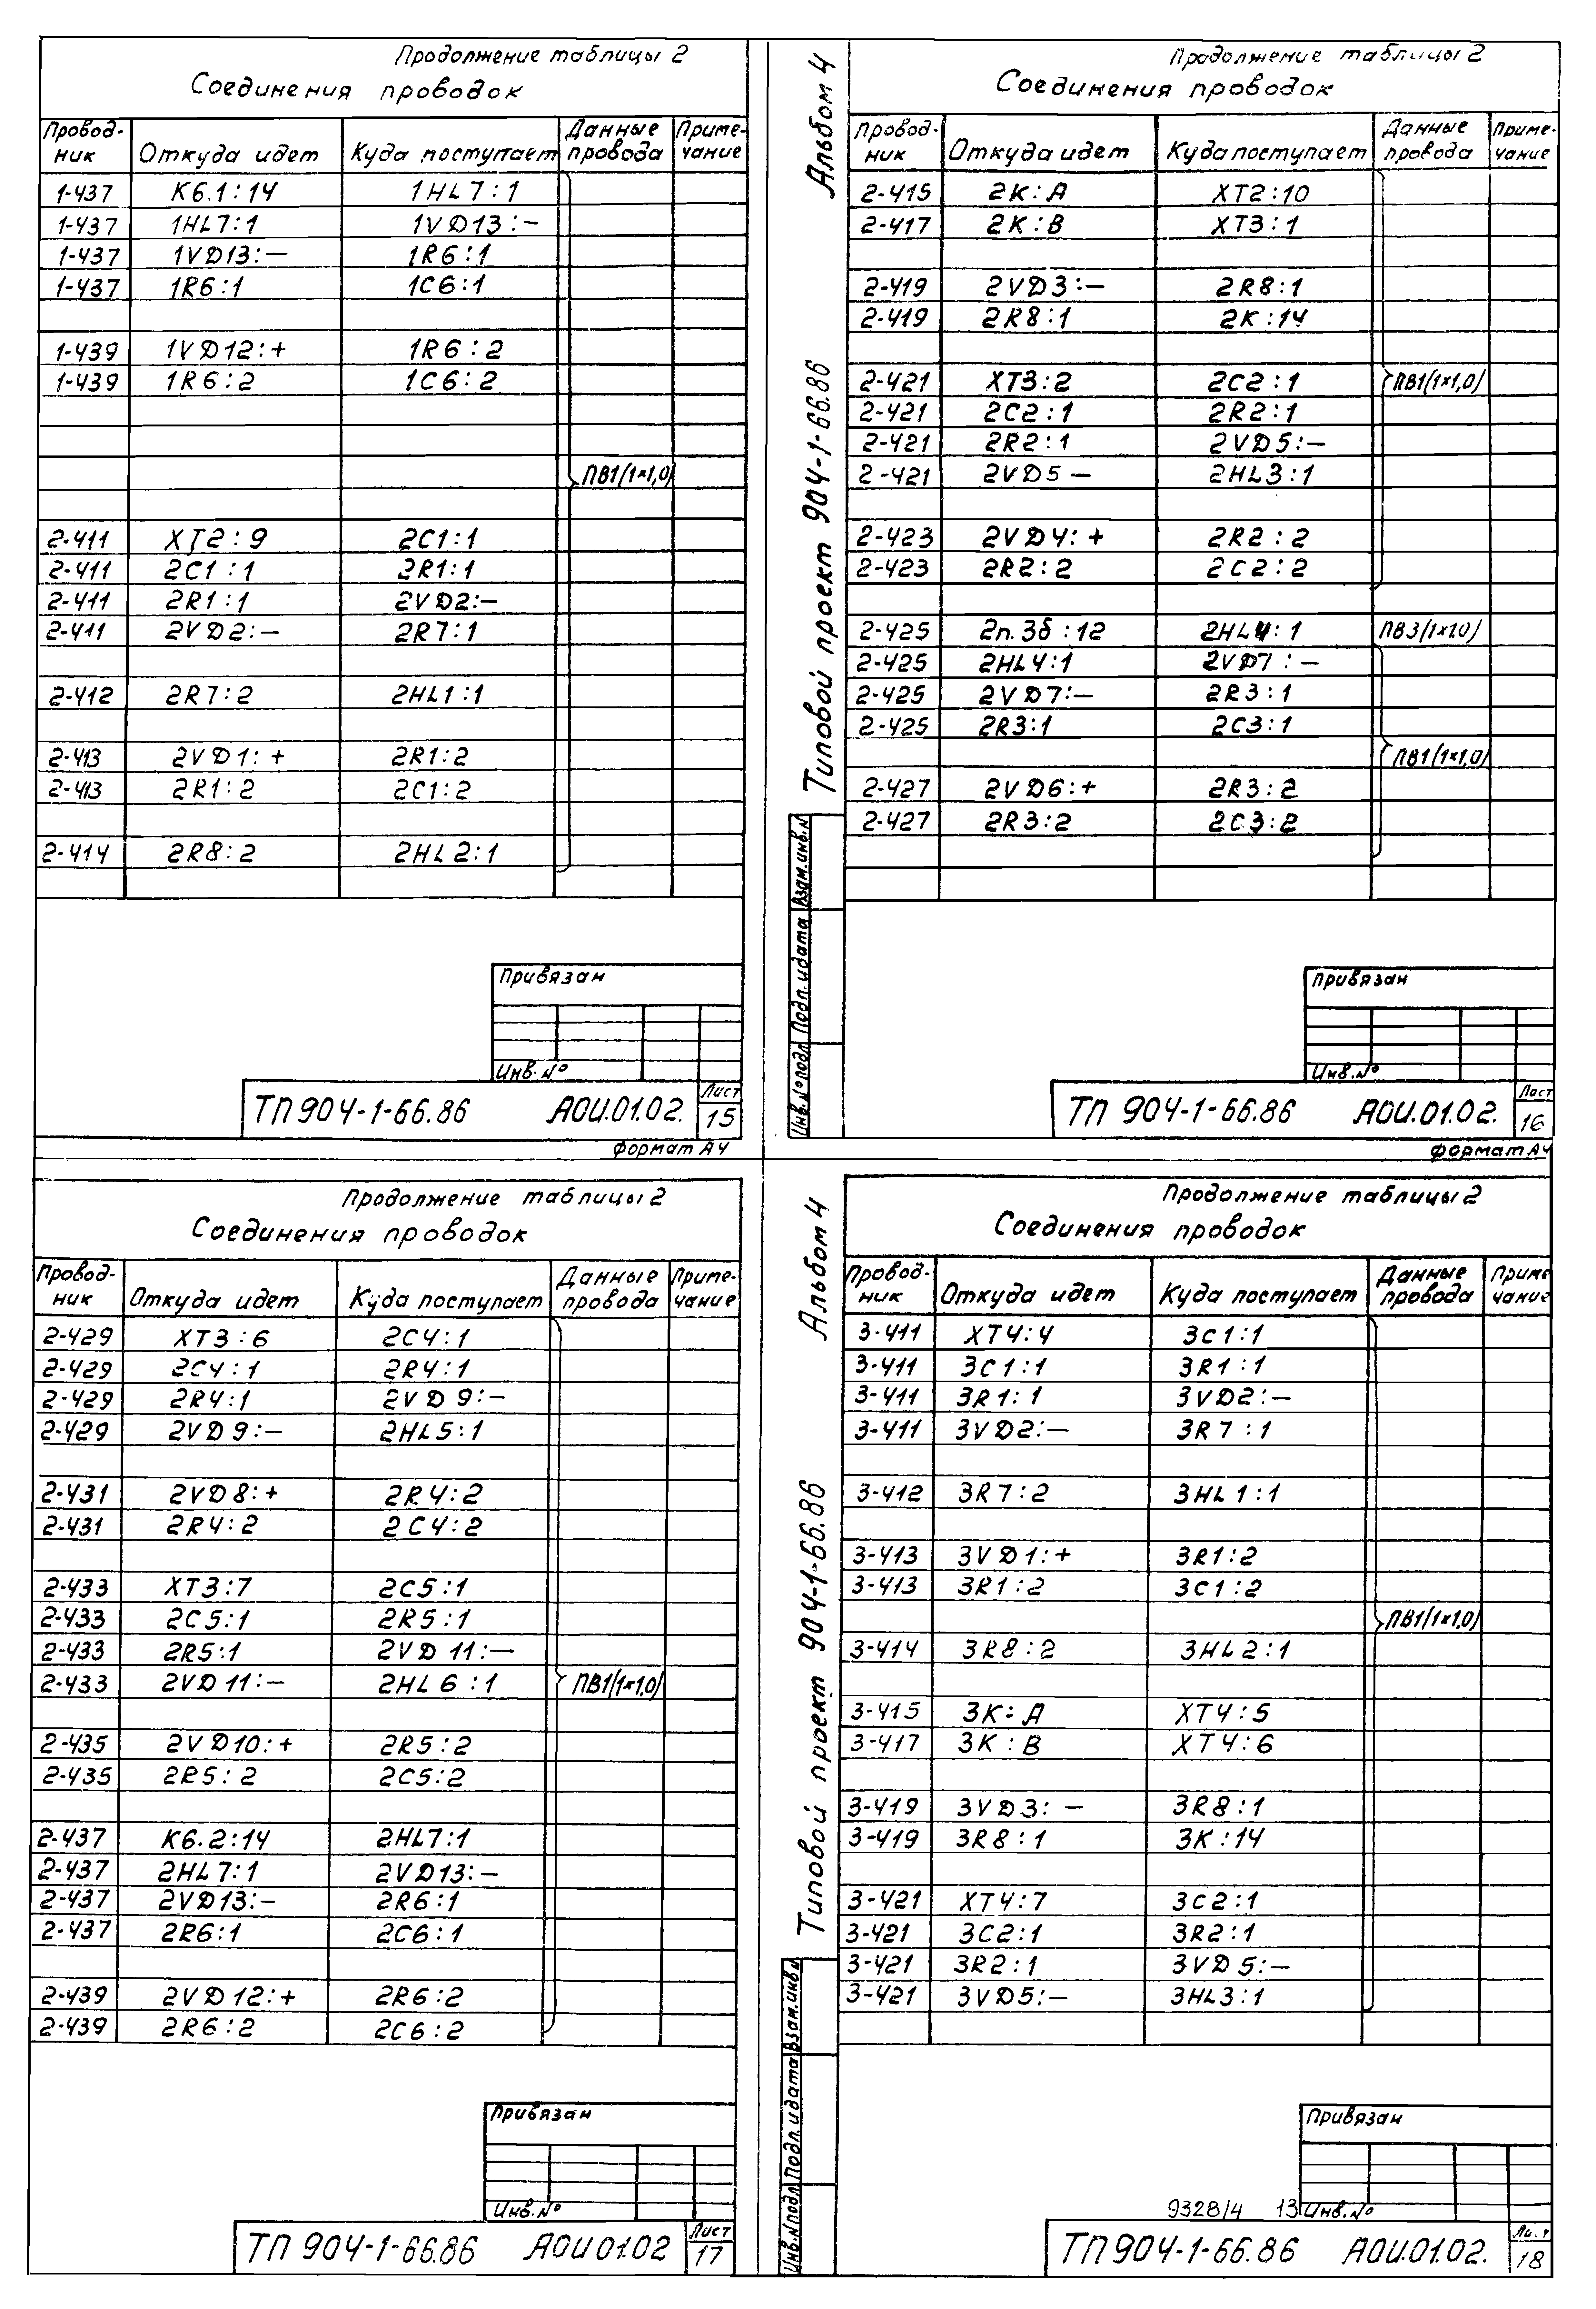 Продолжение таблицы 2
Соединения проводок
Провод-ник Откуда идет Куда поступает Данные провода Приме-чание
1-437 К6.1:14 1HL7:1
1-437 1HL7:1 1VD13:—
1-437 1VD13:— 1R6:1
1-437 1R6:1 1C6:1
1-439 1VD12:+ 1R6:2
1-439 1R6:2 1C6:2
ПВ1(1×1,0)
2-411 XT2:9 2C1:1
2-411 2C1:1 2R1:1
2-411 2R1:1 2VD2:—
2-411 2VD2:— 2R7:1
2-412 2R7:2 2HL1:1
2-413 2VD1:+ 2R1:2
2-413 2R1:2 2C1:2
2-414 2R8:2 2HL2:1
Привязан
Инв.№
ТП 904-1-66.86 АОИ.01.02. Лист 15
формат А4
Альбом 4
Типовой проект 904-1-66.86
Взам.инв.№
Подп. и дата
Инв.№подл
Продолжение таблицы 2
Соединения проводок
Провод-ник Откуда идет Куда поступает Данные провода Приме-чание
2-415 2K:A XT2:10
2-417 2K:B XT3:1
2-419 2VD3:— 2R8:1
2-419 2R8:1 2K:14
2-421 XT3:2 2C2:1 ПВ1(1×1,0)
2-421 2C2:1 2R2:1
2-421 2R2:1 2VD5:—
2-421 2VD5 — 2HL3:1
2-423 2VD4:+ 2R2:2
2-423 2R2:2 2C2:2
2-425 2п.3б:12 2HL4:1 ПВ3(1×1,0)
2-425 2HL4:1 2VD7:—
2-425 2VD7:— 2R3:1
2-425 2R3:1 2C3:1
ПВ1(1×1,0)
2-427 2VD6:+ 2R3:2
2-427 2R3:2 2C3:2
Привязан
Инв.№
ТП 904-1-66.86 АОИ.01.02. Лист 16
формат А4
Продолжение таблицы 2
Соединения проводок
Провод-ник Откуда идет Куда поступает Данные провода Приме-чание
2-429 XT3:6 2C4:1
2-429 2C4:1 2R4:1
2-429 2R4:1 2VD9:—
2-429 2VD9:— 2HL5:1
2-431 2VD8:+ 2R4:2
2-431 2R4:2 2C4:2
2-433 XT3:7 2C5:1
2-433 2C5:1 2R5:1
2-433 2R5:1 2VD11:—
2-433 2VD11:— 2HL6:1 ПВ1(1×1,0)
2-435 2VD10:+ 2R5:2
2-435 2R5:2 2C5:2
2-437 К6.2:14 2HL7:1
2-437 2HL7:1 2VD13:—
2-437 2VD13:— 2R6:1
2-437 2R6:1 2C6:1
2-439 2VD12:+ 2R6:2
2-439 2R6:2 2C6:2
Привязан
Инв.№
ТП 904-1-66.86 АОИ 01.02 Лист 17
Альбом 4
Типовой проект 904-1-66.86
Взам.инв.№
Подп. и дата
Инв.№подл
Продолжение таблицы 2
Соединения проводок
Провод-ник Откуда идет Куда поступает Данные провода Приме-чание
3-411 XT4:4 3C1:1
3-411 3C1:1 3R1:1
3-411 3R1:1 3VD2:—
3-411 3VD2:— 3R7:1
3-412 3R7:2 3HL1:1
3-413 3VD1:+ 3R1:2
3-413 3R1:2 3C1:2
ПВ1(1×1,0)
3-414 3R8:2 3HL2:1
3-415 3K:A XT4:5
3-417 3K:B XT4:6
3-419 3VD3:— 3R8:1
3-419 3R8:1 3K:14
3-421 XT4:7 3C2:1
3-421 3C2:1 3R2:1
3-421 3R2:1 3VD5:—
3-421 3VD5:— 3HL3:1
Привязан
9328/4 13 Инв.№
ТП 904-1-66.86 АОИ.01.02. Лист 18